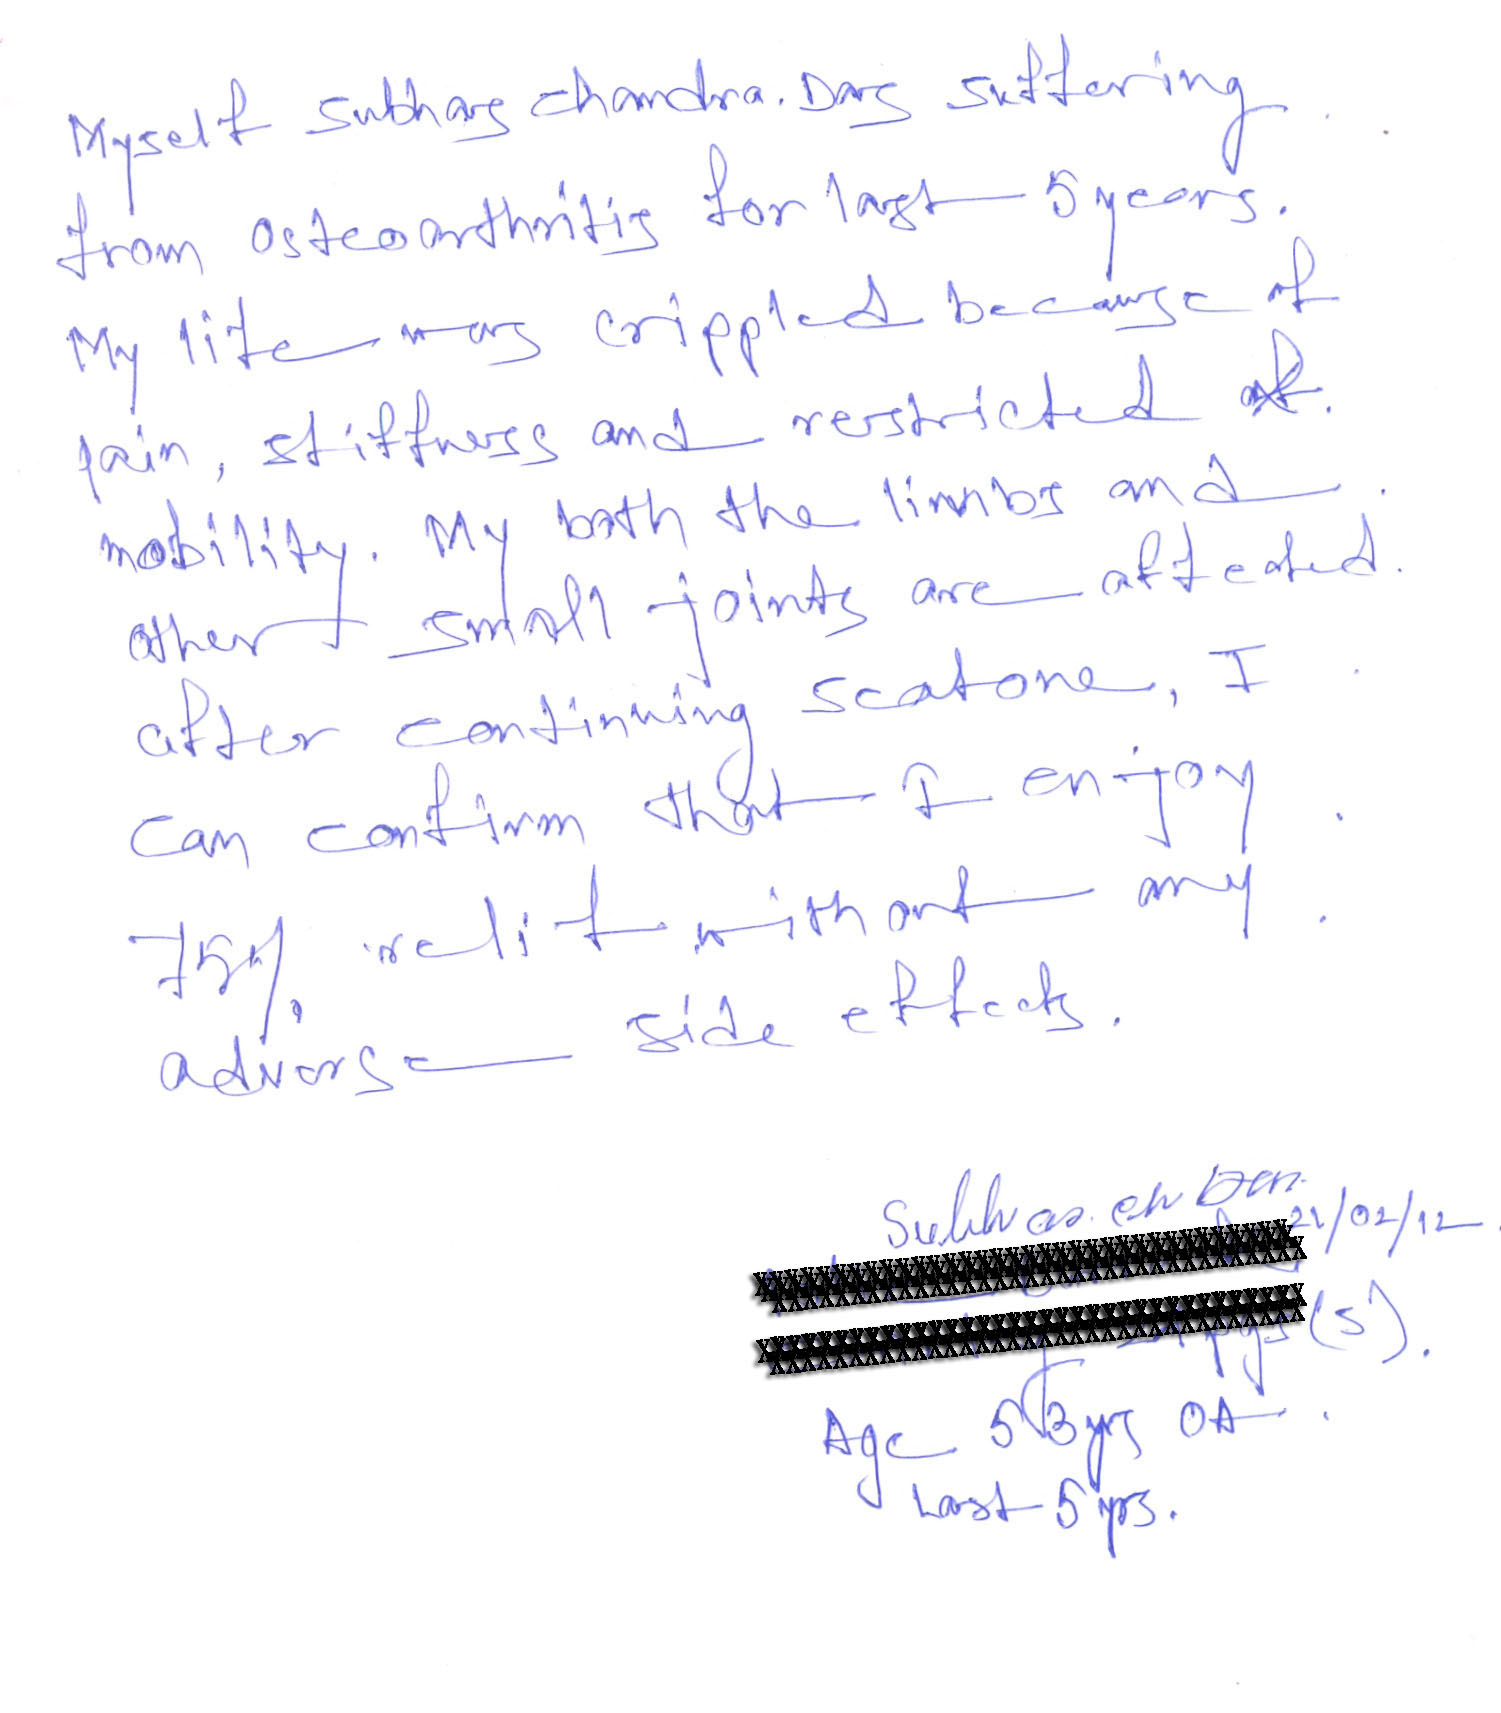 Myself Subhas Chandra. Das suffering
from Osteoarthritis for last 5 years.
My life was crippled because of
pain, stiffness and restricted
mobility. My both the limbs and
other small joints are affected.
after continuing scatone, I
can confirm that I enjoy
75% relif without any
adverse side effects.
Subhas ch Das.
21/02/12
(S).
Age 53 yrs OA
Last 5 yrs.